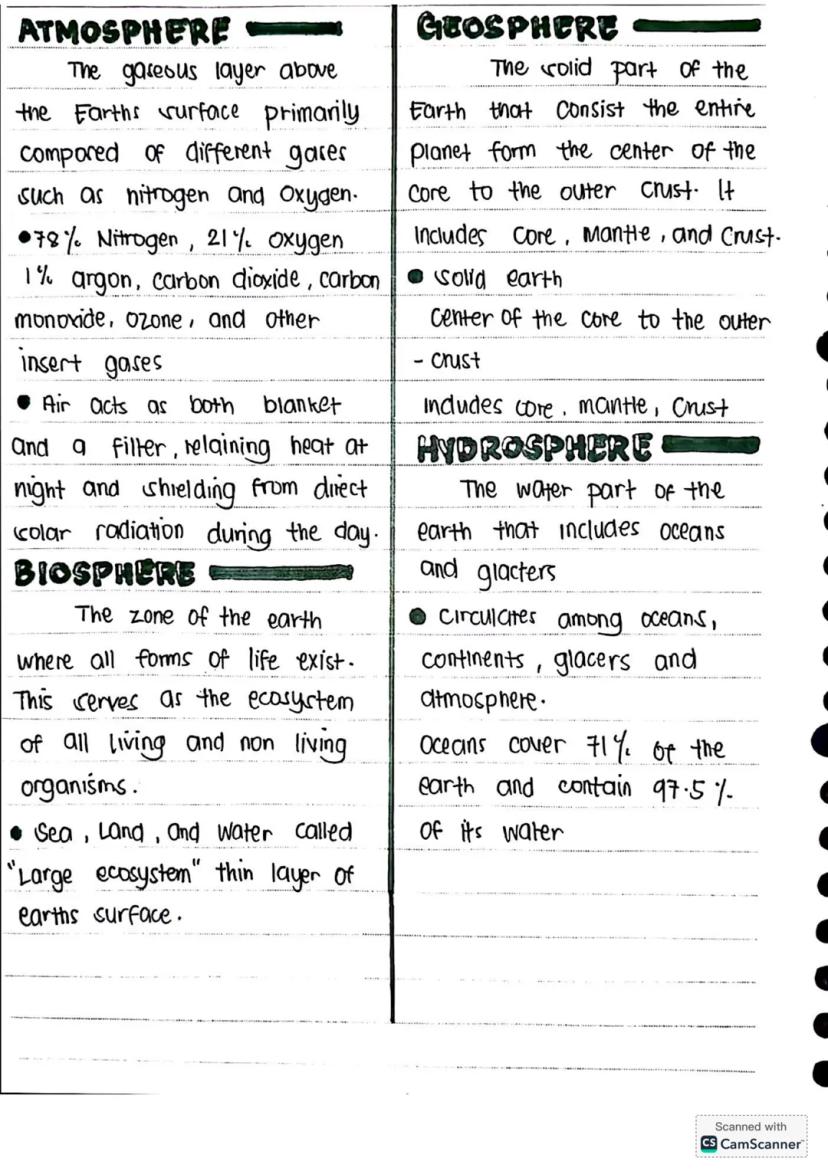 ATMOSPHERE
The gaseous layer above
the Earths surface primarily
compored of different gases
such as nitrogen and oxygen.
•78% Nitrogen, 21% oxygen
1% argon, carbon dioxide, carbon
monoxide, ozone, and other
insert gases
• Air acts as both blanket
and a filter, relaining heat at
night and shielding from direct
solar radiation during the day.
BIOSPHERE
The zone of the earth
where all forms of life exist.
This serves as the ecosystem
of all living and non living
organisms.
• Sea, Land, and water called
"Large ecosystem" thin layer of
earths surface.
GEOSPHERE
The solid part of the
Earth that consist the entire
planet form the center of the
core to the outer crust. It
includes core, Mantle, and Crust.
• solid earth
center of the core to the outer
- crust
includes core, mantle, crust
HYDROSPHERE
The water part of the
earth that includes oceans
and glacters
• Circulates among oceans,
continents, glacers and
atmosphere.
oceans cover 71% of the
earth and contain 97.5%
of its water
Scanned with
CS CamScanner